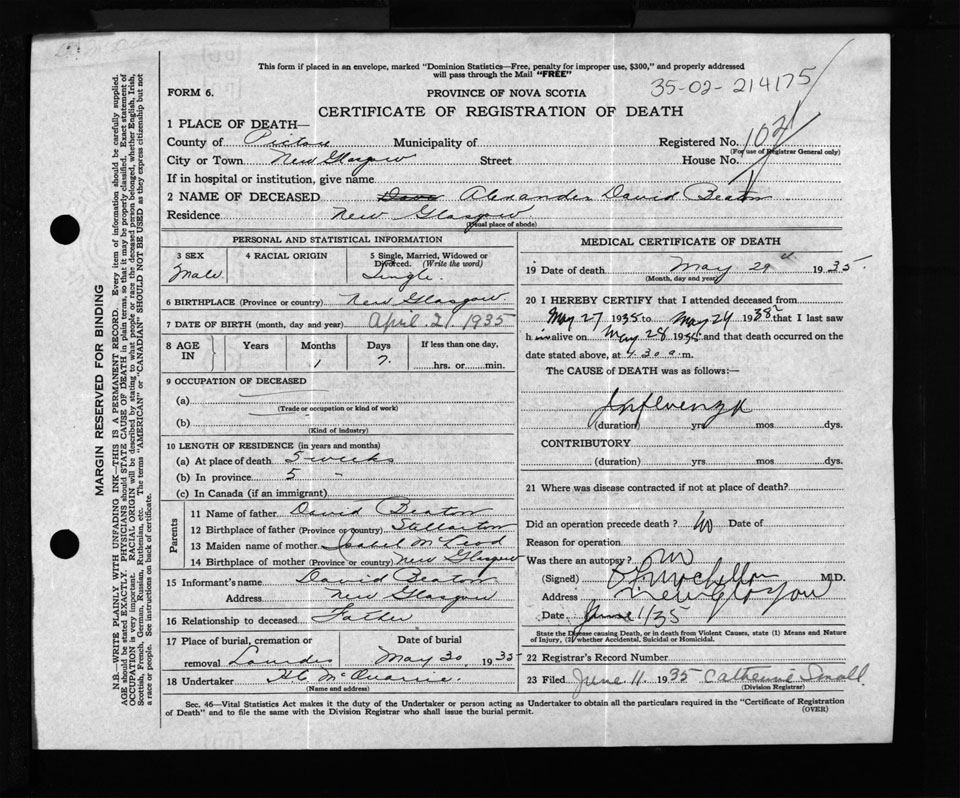 This form if placed in an envelope, marked "Dominion Statistics—Free, penalty for improper use, $300," and properly addressed
will pass through the Mail "FREE"
FORM 6. PROVINCE OF NOVA SCOTIA 35-02-214175
CERTIFICATE OF REGISTRATION OF DEATH
1 PLACE OF DEATH—
County of Pictou Municipality of Registered No. 102
(For use of Registrar General only)
City or Town New Glasgow Street House No.
If in hospital or institution, give name
2 NAME OF DECEASED Alexander David Beaton
Residence New Glasgow
(Usual place of abode)
PERSONAL AND STATISTICAL INFORMATION
3 SEX 4 RACIAL ORIGIN 5 Single, Married, Widowed or
Divorced. (Write the word)
Male Single
6 BIRTHPLACE (Province or country) New Glasgow
7 DATE OF BIRTH (month, day and year) April 21, 1935
8 AGE IN Years Months Days If less than one day,
1 7 hrs. or min.
9 OCCUPATION OF DECEASED
(a)
(Trade or occupation or kind of work)
(b)
(Kind of industry)
10 LENGTH OF RESIDENCE (in years and months)
(a) At place of death 5 weeks
(b) In province 5 -
(c) In Canada (if an immigrant)
Parents
11 Name of father David Beaton
12 Birthplace of father (Province or country) Stellarton
13 Maiden name of mother Isabel McLeod
14 Birthplace of mother (Province or country) New Glasgow
15 Informant's name David Beaton
Address New Glasgow
16 Relationship to deceased Father
17 Place of burial, cremation or Date of burial
removal May 30, 1935
18 Undertaker H C McQuarrie
(Name and address)
MEDICAL CERTIFICATE OF DEATH
19 Date of death May 29th 1935.
(Month, day and year)
20 I HEREBY CERTIFY that I attended deceased from
May 27 1935 to May 29 193 that I last saw
him alive on May 28 1935 and that death occurred on the
date stated above, at 4.30 a.m.
The CAUSE of DEATH was as follows:—
Influenza
(duration) yrs mos dys.
CONTRIBUTORY
(duration) yrs mos dys.
21 Where was disease contracted if not at place of death?
Did an operation precede death? No Date of
Reason for operation
Was there an autopsy? No
(Signed) M.D.
Address New Glasgow
Date June 1/35
State the Disease causing Death, or in death from Violent Causes, state (1) Means and Nature
of Injury, (2) whether Accidental, Suicidal or Homicidal.
22 Registrar's Record Number
23 Filed June 11, 1935 Catherine Small
(Division Registrar)
Sec. 46—Vital Statistics Act makes it the duty of the Undertaker or person acting as Undertaker to obtain all the particulars required in the "Certificate of Registration
of Death" and to file the same with the Division Registrar who shall issue the burial permit. (OVER)
MARGIN RESERVED FOR BINDING
N.B.—WRITE PLAINLY WITH UNFADING INK—THIS IS A PERMANENT RECORD. Every item of information should be carefully supplied.
AGE should be stated EXACTLY. PHYSICIANS should STATE CAUSE OF DEATH in plain terms, so that it may be properly classified. Exact statement of
OCCUPATION is very important. RACIAL ORIGIN will be described by stating to what people or race the deceased person belonged, whether English, Irish,
Scottish, French, German, Russian, Ruthenian, etc. The terms "AMERICAN" or "CANADIAN" SHOULD NOT BE USED as they express citizenship but not
a race or people. See instructions on back of certificate.